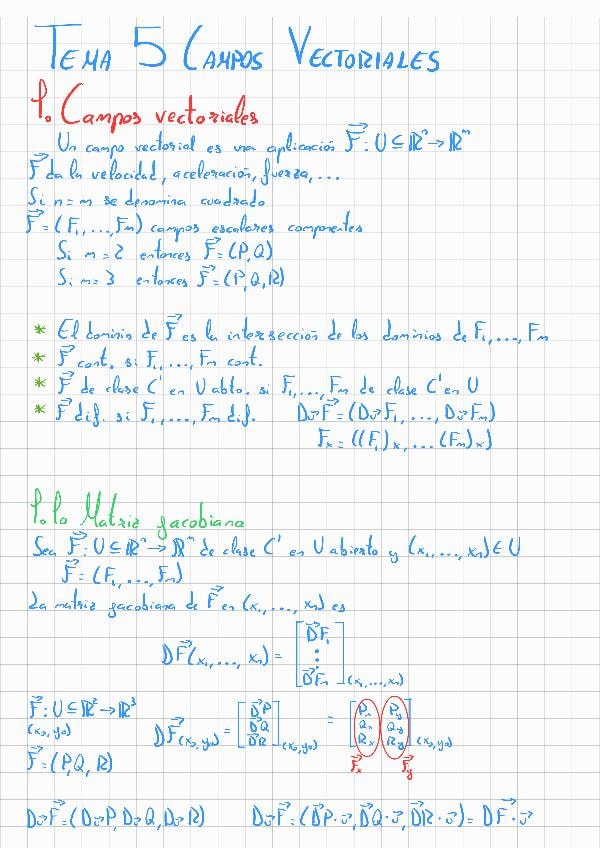 TEMA 5 CAMPOS VECTORIALES
1. Campos vectoriales
Un campo vectorial es una aplicación F⃗: U ⊆ ℝⁿ → ℝᵐ
F⃗ da la velocidad, aceleración, fuerza, ...
Si n = m se denomina cuadrado
F⃗ = (F₁, ..., Fₘ) campos escalares componentes
Si m = 2 entonces F⃗ = (P, Q)
Si m = 3 entonces F⃗ = (P, Q, R)
* El dominio de F⃗ es la intersección de los dominios de F₁, ..., Fₘ
* F⃗ cont. si F₁, ..., Fₘ cont.
* F⃗ de clase C¹ en U abto. si F₁, ..., Fₘ de clase C¹ en U
* F⃗ dif. si F₁, ..., Fₘ dif. D_v⃗ F⃗ = (D_v⃗ F₁, ..., D_v⃗ Fₘ)
Fₓ = ((F₁)ₓ, ... (Fₘ)ₓ)
1.1. Matriz jacobiana
Sea F⃗: U ⊆ ℝⁿ → ℝᵐ de clase C¹ en U abierto y (x₁, ..., xₙ) ∈ U
F⃗ = (F₁, ..., Fₘ)
La matriz jacobiana de F⃗ en (x₁, ..., xₙ) es
DF⃗(x₁, ..., xₙ) = [D⃗F₁ ⋮ D⃗Fₘ](x₁, ..., xₙ)
F⃗: U ⊆ ℝ² → ℝ³
(x₀, y₀)
DF⃗(x₀, y₀) = [D⃗P D⃗Q D⃗R](x₀, y₀) = [Pₓ P_y Qₓ Q_y Rₓ R_y](x₀, y₀)
F⃗ = (P, Q, R)
F⃗ₓ F⃗_y
D_v⃗ F⃗ = (D_v⃗ P, D_v⃗ Q, D_v⃗ R) D_v⃗ F⃗ = (D⃗P · v⃗, D⃗Q · v⃗, D⃗R · v⃗) = DF⃗ · v⃗